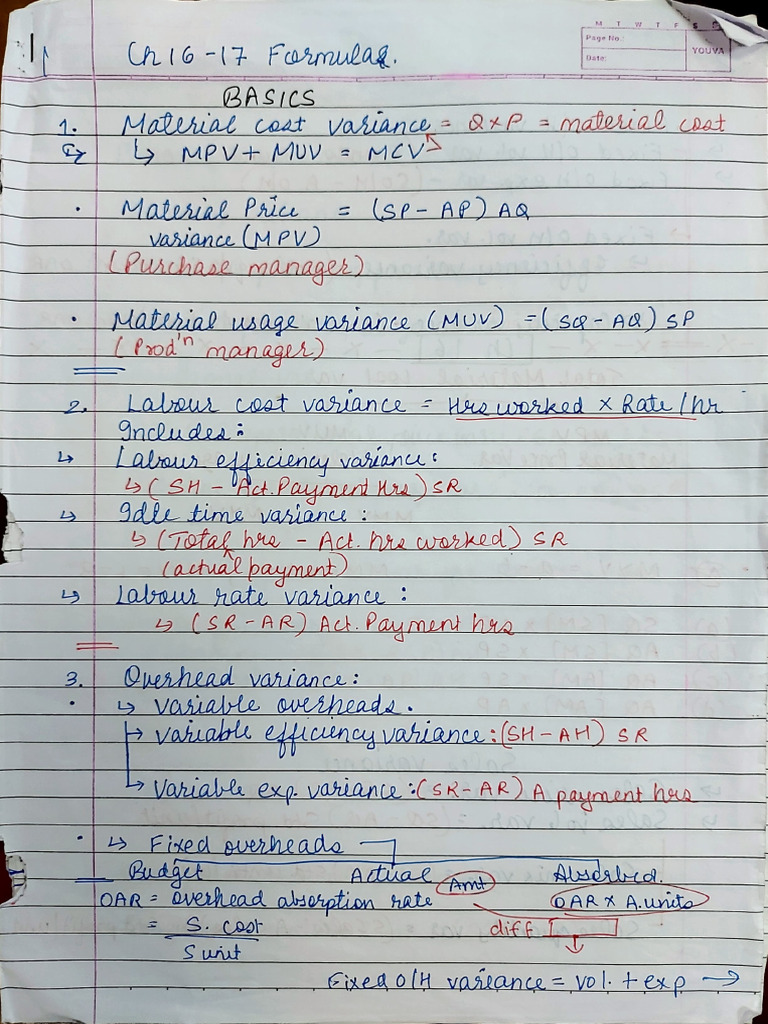 M T W T F S S
Page No.:
Date:
YOUVA
Ch 16-17 Formulas.
BASICS
1. Material cost variance = Q×P = material cost
↳ MPV + MUV = MCV
· Material Price = (SP - AP) AQ
variance (MPV)
(Purchase manager)
· Material usage variance (MUV) = (SQ - AQ) SP
(Prod'n manager)
2. Labour cost variance = Hrs worked × Rate/hr
Includes:
↳ Labour efficiency variance:
↳ (SH - Act. Payment Hrs) SR
↳ Idle time variance:
↳ (Total hrs - Act. hrs worked) SR
(actual payment)
↳ Labour rate variance:
↳ (SR - AR) Act. Payment hrs
3. Overhead variance:
· ↳ variable overheads.
↳ variable efficiency variance: (SH - AH) SR
↳ variable exp. variance: (SR - AR) A payment hrs
· ↳ Fixed overheads
Budget Actual Absorbed.
OAR = overhead absorption rate Amt OAR × A.units
= S. cost diff
S unit
Fixed O/H variance = vol. + exp →